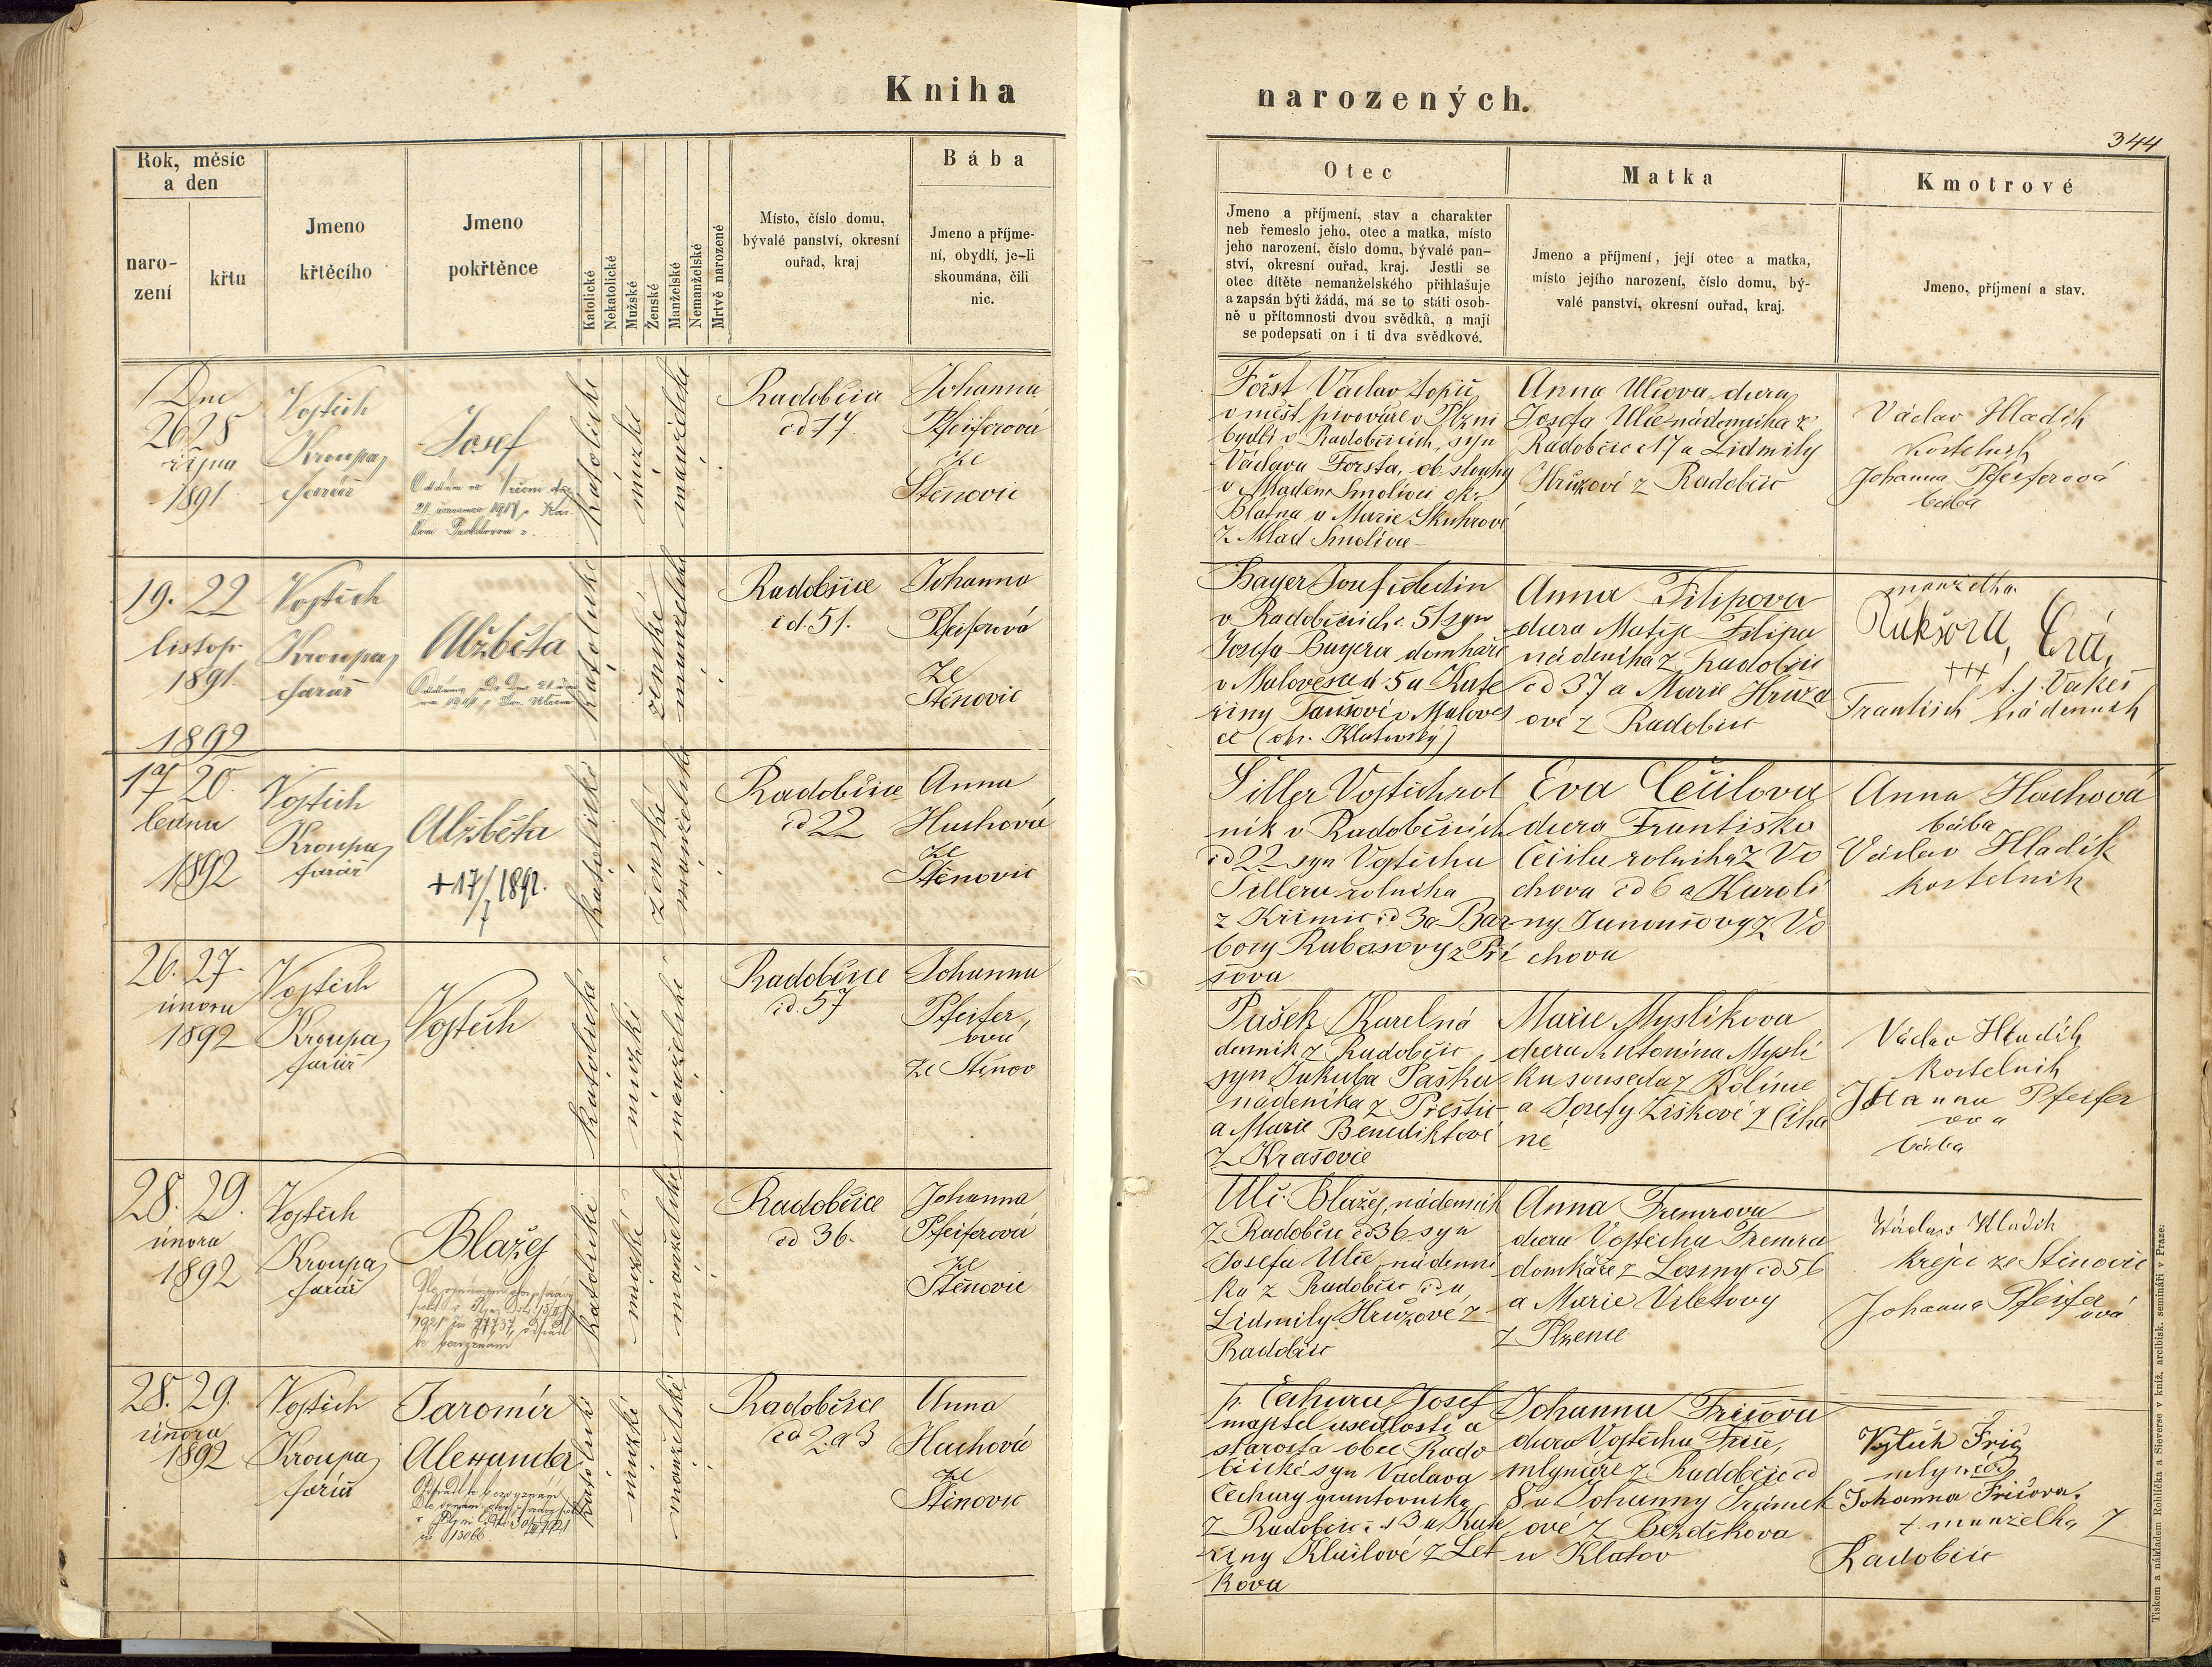 Kniha
narozených.
344
Rok, měsíc
a den
naro-
zení
křtu
Jmeno
křtěcího
Jmeno
pokřtěnce
Katolické
Nekatolické
Mužské
Ženské
Manželské
Nemanželské
Mrtvě narozené
Místo, číslo domu,
bývalé panství, okresní
ouřad, kraj
Bába
Jmeno a příjme-
ní, obydlí, je-li
skoumána, čili
nic.
Otec
Jmeno a příjmení, stav a charakter
neb řemeslo jeho, otec a matka, místo
jeho narození, číslo domu, bývalé pan-
ství, okresní ouřad, kraj. Jestli se
otec dítěte nemanželského přihlašuje
a zapsán býti žádá, má se to státi osob-
ně u přítomnosti dvou svědků, a mají
se podepsati on i ti dva svědkové.
Matka
Jmeno a příjmení, její otec a matka,
místo jejího narození, číslo domu, bý-
valé panství, okresní ouřad, kraj.
Kmotrové
Jmeno, příjmení a stav.
Dne
26 28
října
1891
Vojtěch
Kroupa
farář
Josef
katolické
mužské
manželské
Radobčice
čd 17
Johanna
Pfeiferová
ze
Štěnovic
Först Václav topič
v měšť. pivováře v Plzni
bydlí v Radobčicích, syn
Václava Första, ob. slouhy
v Mladém Smolivci okr.
Blatna a Marie Skuhrové
z Mlad Smolivce
Anna Ulčova dcera
Josefa Ulče nádenníka z
Radobčic 17 a Lidmily
Hrůzové z Radobčic
Václav Hladík
kostelník
Johanna Pfeiferová
bába
19. 22
listop.
1891
Vojtěch
Kroupa
farář
Alžběta
katolické
ženské
manželské
Radobčice
čd. 51.
Johanna
Pfeifrová
ze
Štěnovic
Bayer Josef
v Radobčicích č. 51 syn
Josefa Bayera domkáře
5 a Kate
řiny
ce (okr. Klatovský)
Anna Filipova
dcera Matěje Filipa
nádeníka z Radobčic
čd 37 a Marie Hrůza
ové z Radobčic
manželka
+++
František nádenník
1892
17 20.
ledna
1892
Vojtěch
Kroupa
farář
Alžběta
+17/7 1892.
katolické
ženské
manželské
Radobčice
čd 22
Anna
Huchová
ze
Štěnovic
Šiller Vojtěch rol
ník v Radobčicích
čd 22 syn Vojtěcha
Šillera rolníka
z Křimic čd 3 a Bar
bory Rubasovy z Pří
šova
Eva Čečilova
dcera Františka
Čečila rolníka z Vo
chova čd 6 a Karolí
ny z Vo
chova
Anna Hachová
bába
Václav Hladík
kostelník
26. 27.
února
1892
Vojtěch
Kroupa
farář
Vojtěch
katolické
mužské
manželské
Radobčice
čd. 57
Johanna
Pfeifer
ová
ze Štěnov
Pašek Karel ná
denník z Radobčic
syn Jakuba Paška
nádeníka z Přeštic
a Marie Benediktové
z Krašovic
Marie Myslíkova
dcera Antonína Myslí
ka souseda z Kolince
a Josefy Žiškové z Číha
ně
Václav Hladík
kostelník
Johanna Pfeifer
ova
bába
28. 29.
února
1892
Vojtěch
Kroupa
farář
Blažej
katolické
mužské
manželské
Radobčice
čd 36.
Johanna
Pfeiferová
ze
Štěnovic
Ulč Blažej, nádenník
z Radobčic čd 36 syn
Josefa Ulče nádenní
ka z Radobčic čd a
Lidmily Hrůzové z
Radobčic
Anna Tremrova
dcera Vojtěcha Tremra
domkáře z Losiny čd 56
a Marie Viletovy
z Plzence
Václav Hladík
krejčí ze Štěnovic
Johanna Pfeifer
ová
28. 29.
února
1892
Vojtěch
Kroupa
farář
Jaromír
Alexander
katolické
mužské
manželské
Radobčice
čd 2 a 3
Anna
Hachová
ze
Štěnovic
p. Čechura Josef
majitel usedlosti a
starosta obce Rado
bčické syn Václava
Čechury gruntovníka
z Radobčic čd 3 a Kate
řiny Klučilové z Let
kova
Johanna Fričova
dcera Vojtěcha Friče,
mlynáře z Radobčic čd
8 a Johanny
ové z Bezděkova
u Klatov
Vojtěch Frič
mlynář
Johanna Fričova
manželka z
Radobčic
Tiskem a nákladem Rohlíčka a Sieverse v kníž. arcibisk. semináři v Praze.